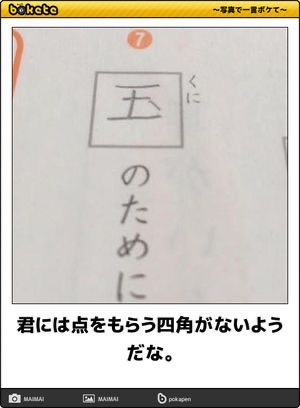 bokete
〜写真で一言ボケて〜
7
玉
くに
のために
君には点をもらう四角がないよう
だな。
MAIMAI
MAIMAI
pokapen